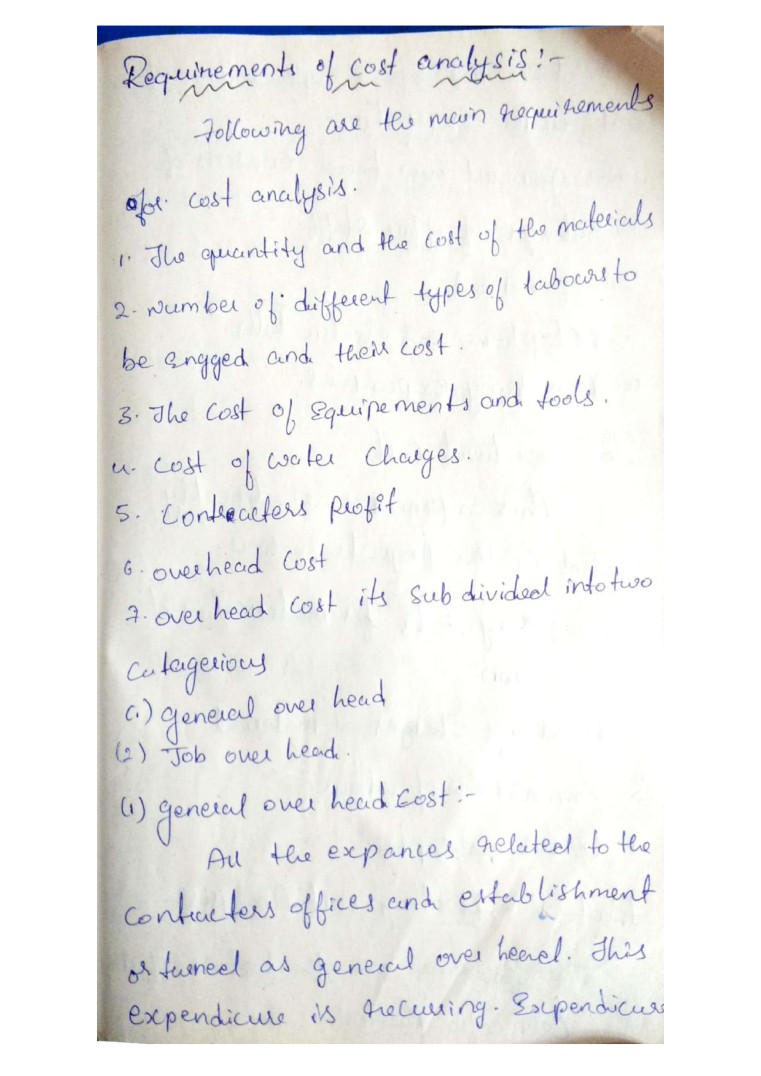 Requirements of cost analysis:-
Following are the main requirements
for cost analysis.
1. The quantity and the cost of the materials
2. Number of different types of labours to
be engged and their cost.
3. The cost of Equipements and tools.
4. cost of water charges.
5. Contracters Profit
6. overhead cost
7. over head cost its sub divided into two
Catagerious
(1) general over head
(2) Job over head.
(1) general over head cost:-
All the expances related to the
contracters offices and establishment
or turned as general over head. This
expendicure is recurring. Expendicure